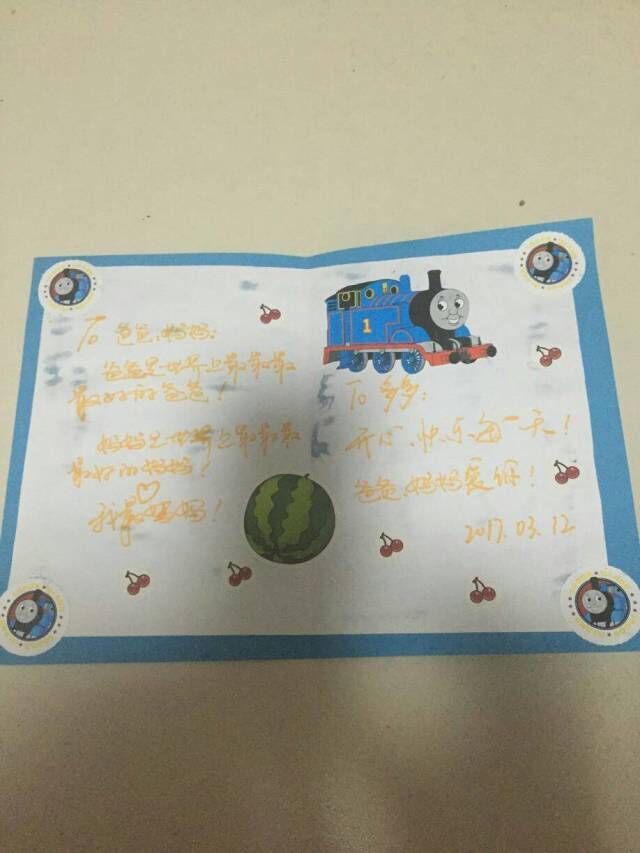 To 爸爸、妈妈:
爸爸是世界上最最最
最好的爸爸!
妈妈是世界上最最最
最好的妈妈!
我最♡妈妈!
1
To 多多:
开心、快乐每一天!
爸爸、妈妈爱你!
2017.03.12